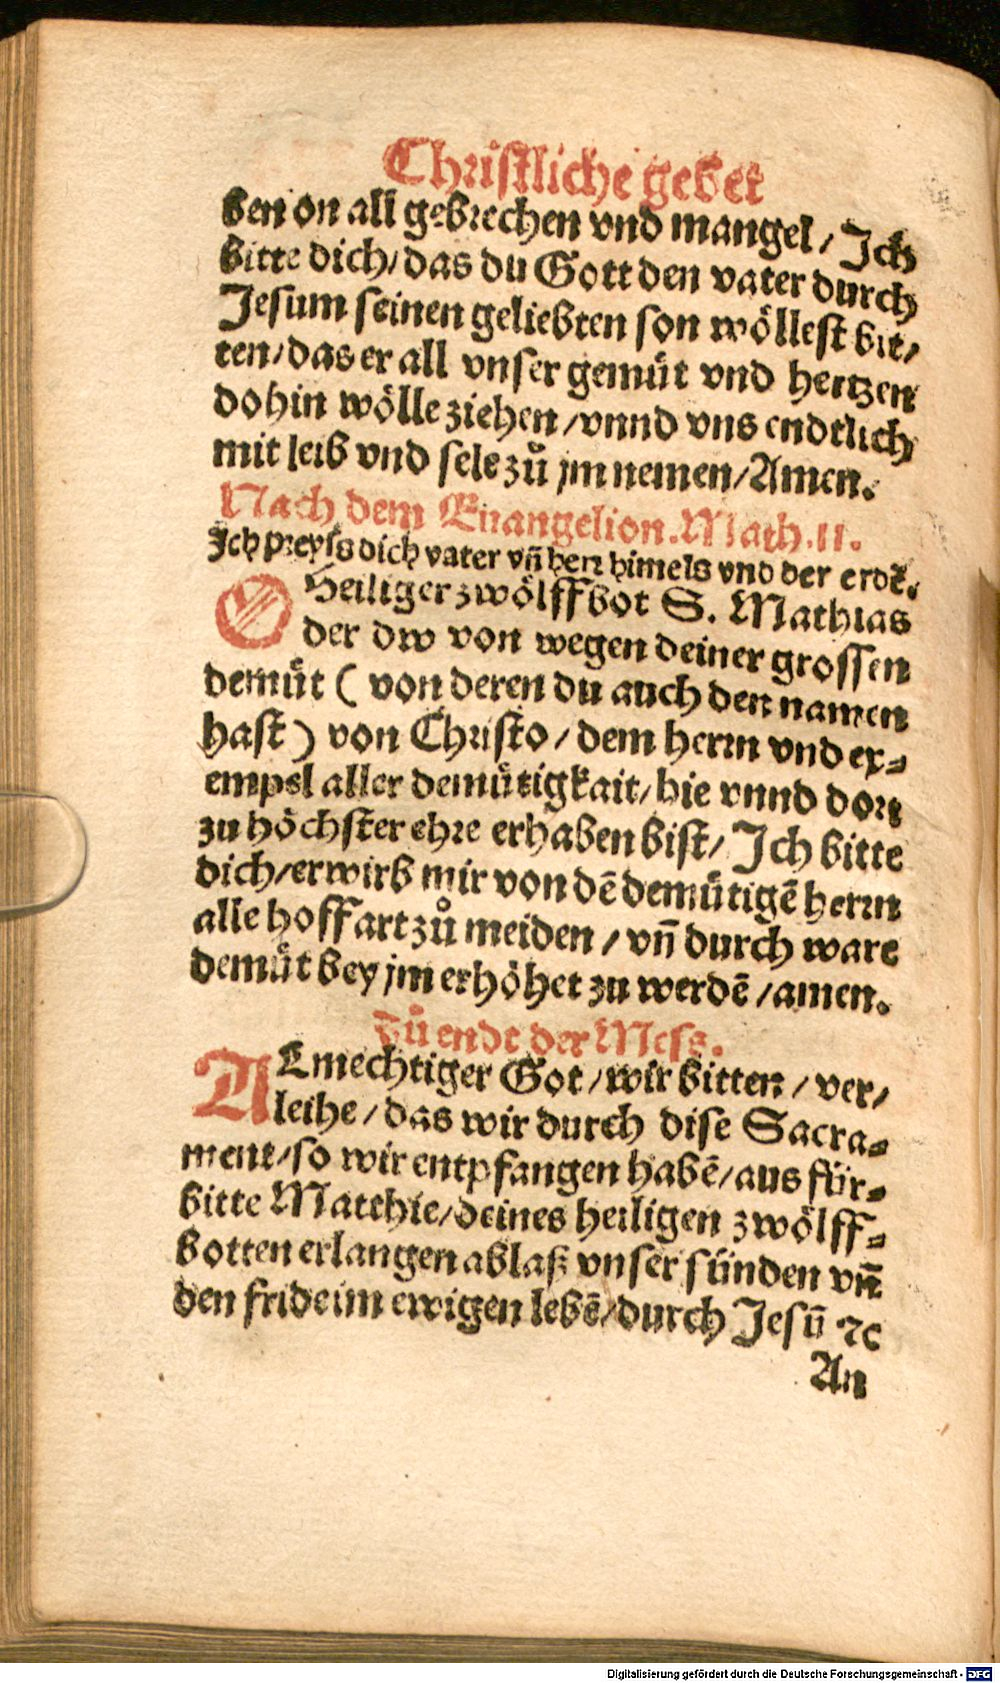 Christliche gebet
ben on all gebrechen vnd mangel / Ich
bitte dich / das du Gott den vater durch
Jesum seinen geliebten son wöllest bit /
ten / das er all vnser gemüt vnd hertzen
dohin wölle ziehen / vnnd vns endtlich
mit leib vnd sele zů jm nemen / Amen.
Nach dem Euangelion. Math. 11.
Ich preyſs dich vater vñ herr himels vnd der erdē.
O Heiliger zwölffbot S. Mathias
der dw von wegen deiner grossen
demüt ( von deren du auch den namen
hast ) von Christo / dem herrn vnd ex=
empel aller demütigkait / hie vnnd dort
zu höchster ehre erhaben bist / Ich bitte
dich / erwirb mir von dē demütigē herrn
alle hoffart zů meiden / vñ durch ware
demüt bey jm erhöhet zu werdē / amen.
Zů endt der Mess.
ALmechtiger Got / wir bitten / ver /
leihe / das wir durch dise Sacra=
ment / so wir entpfangen habē / aus für=
bitte Matthie / deines heiligen zwölff=
botten erlangen ablaß vnser sünden vñ
den fride im ewigen lebē / durch Jesū ⁊c
An
Digitalisierung gefördert durch die Deutsche Forschungsgemeinschaft - DFG